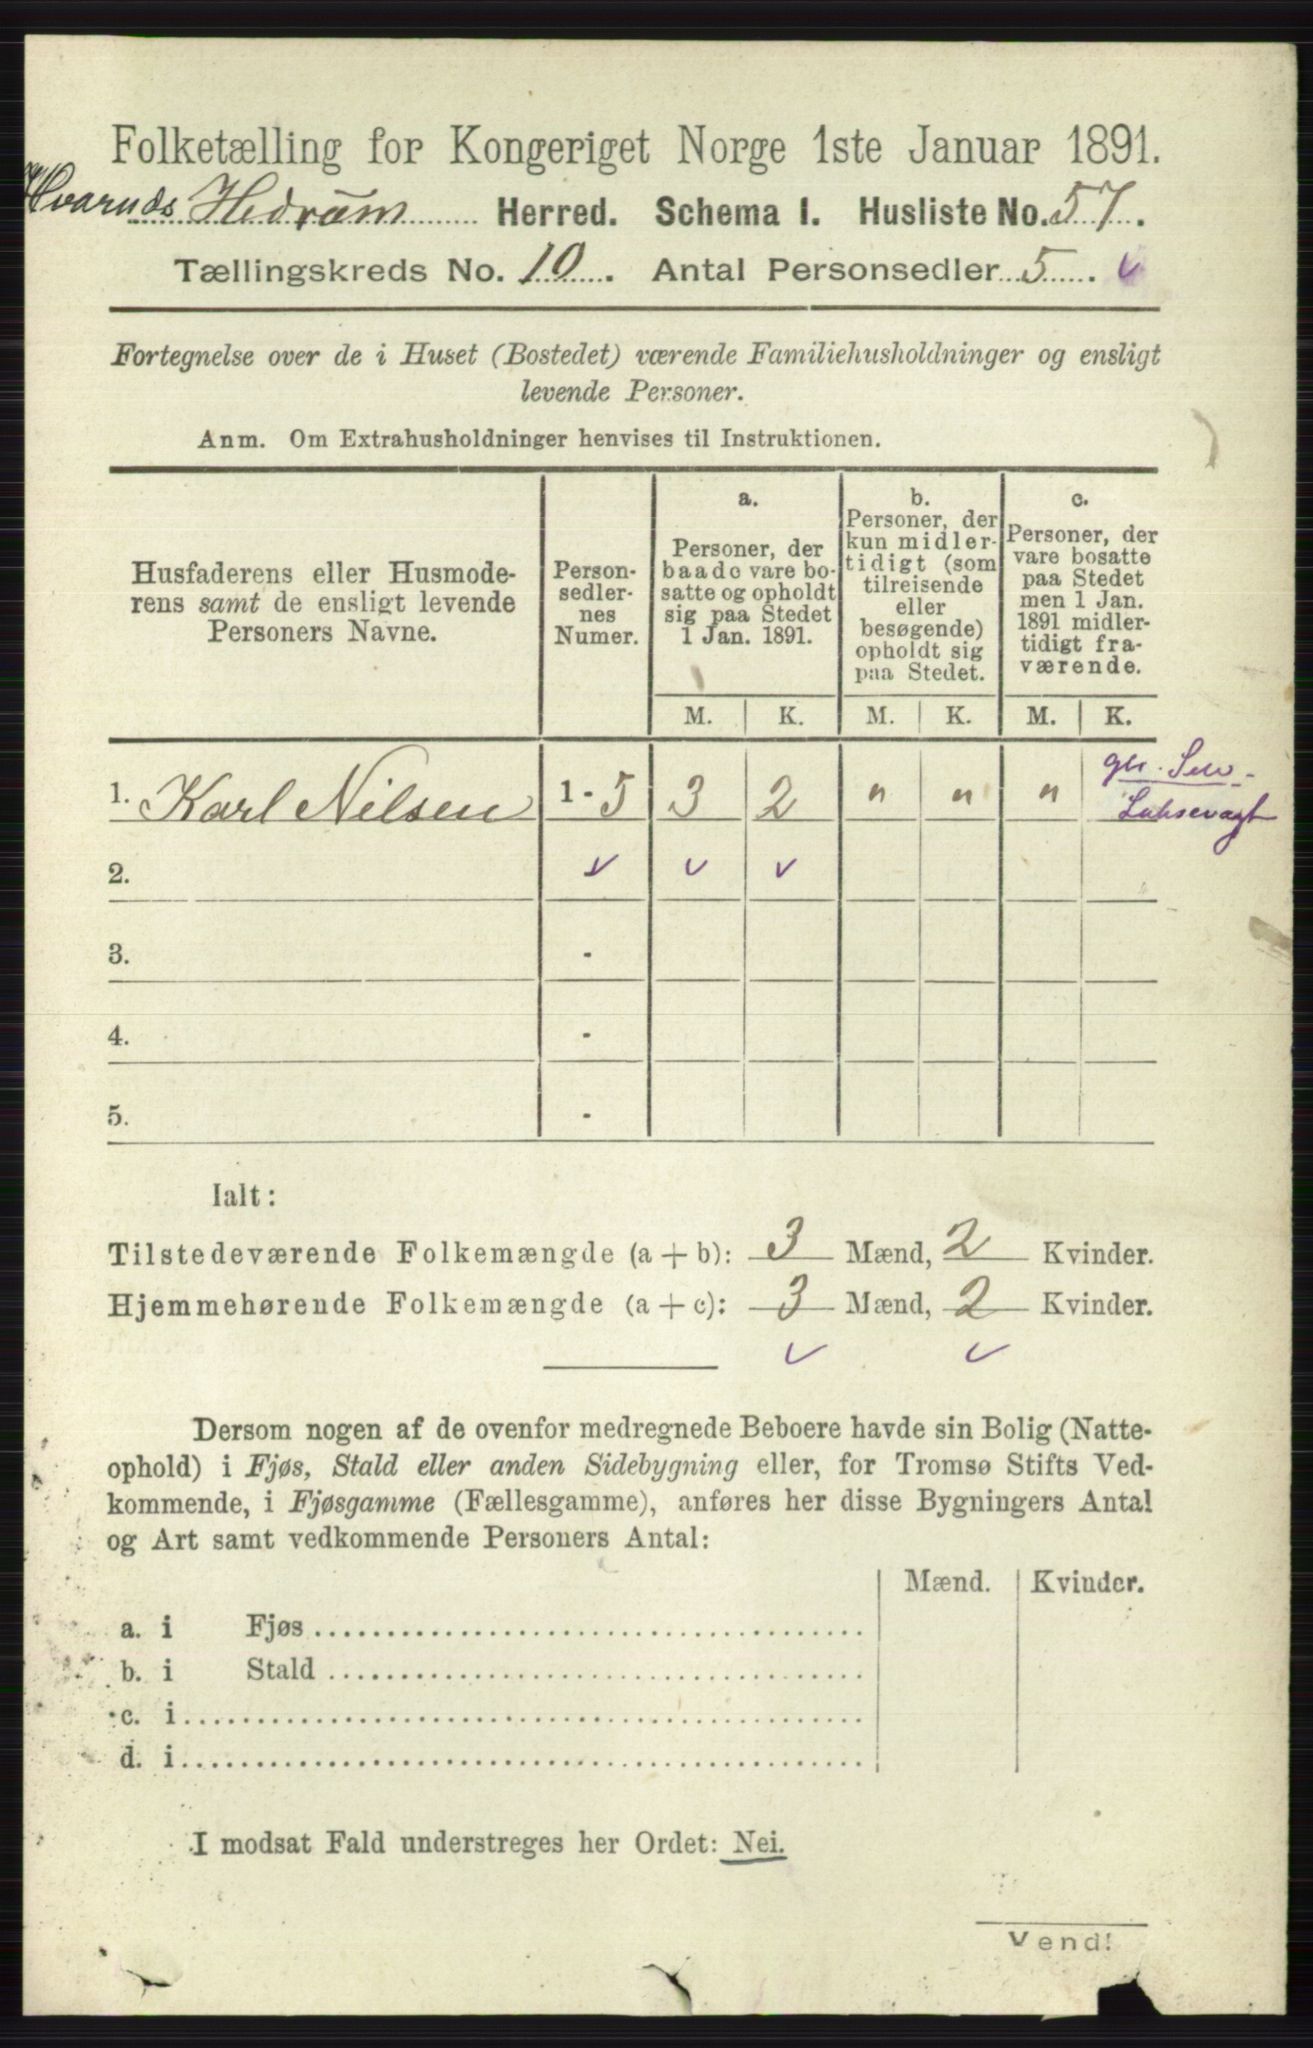 Folketælling for Kongeriget Norge 1ste Januar 1891.
Hvarnæs Hedrum Herred. Schema I. Husliste No. 57.
Tællingskreds No. 10. Antal Personsedler 5. ✓
Fortegnelse over de i Huset (Bostedet) værende Familiehusholdninger og ensligt
levende Personer.
Anm. Om Extrahusholdninger henvises til Instruktionen.
Husfaderens eller Husmode-
rens samt de ensligt levende
Personers Navne.
Person-
sedler-
nes
Numer.
a.
Personer, der
baade vare bo-
satte og opholdt
sig paa Stedet
1 Jan. 1891.
b.
Personer, der
kun midler-
tidigt (som
tilreisende
eller
besøgende)
opholdt sig
paa Stedet.
c.
Personer, der
vare bosatte
paa Stedet
men 1 Jan.
1891 midler-
tidigt fra-
værende.
M. K. M. K. M. K.
1. Karl Nilsen 1 - 5 3 2 " " "
2. ✓ ✓ ✓
3. -
4. -
5. -
Ialt:
Tilstedeværende Folkemængde (a + b): 3 Mænd, 2 Kvinder.
Hjemmehørende Folkemængde (a + c): 3 Mænd, 2 Kvinder.
✓ ✓
Dersom nogen af de ovenfor medregnede Beboere havde sin Bolig (Natte-
ophold) i Fjøs, Stald eller anden Sidebygning eller, for Tromsø Stifts Ved-
kommende, i Fjøsgamme (Fællesgamme), anføres her disse Bygningers Antal
og Art samt vedkommende Personers Antal:
Mænd. Kvinder.
a. i Fjøs
b. i Stald
c. i
d. i
I modsat Fald understreges her Ordet: Nei.
Vend!